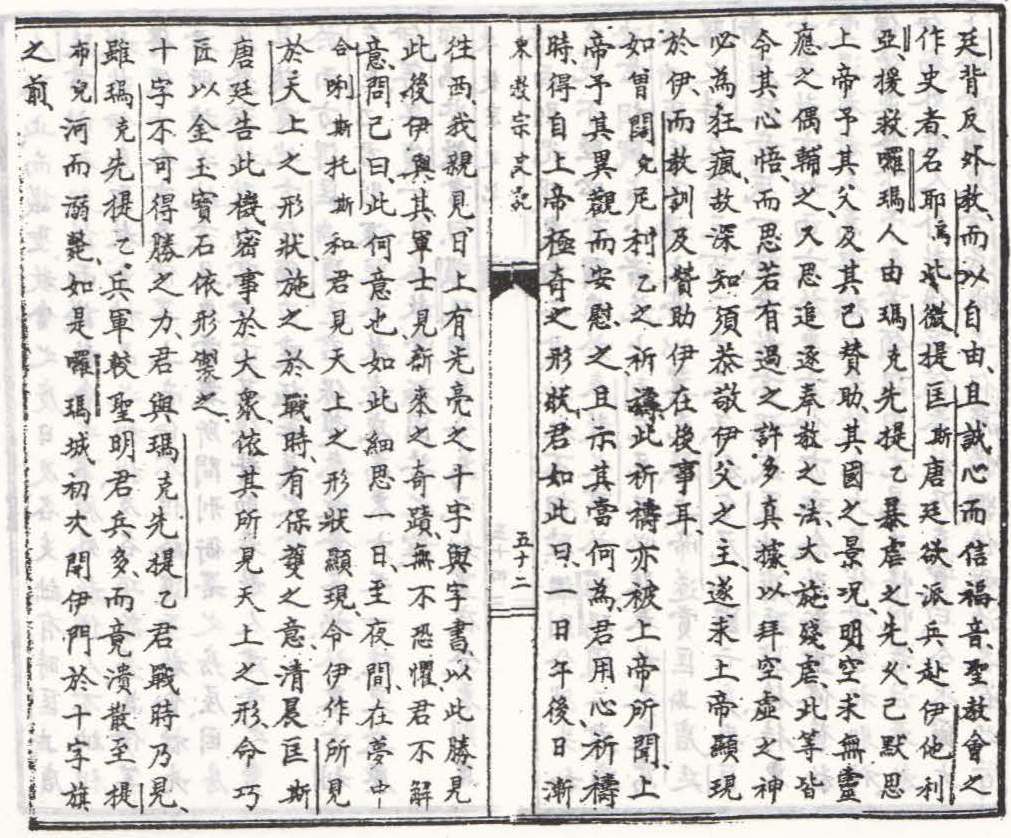 廷背反外教、而以自由、且誠心而信福音、聖教會之
作史者、名耶烏些微提匡斯唐廷欲派兵赴伊他利
亞、援救囉瑪人由瑪克先提乙暴虐之先、乂己默思
上帝予其父、及其己贊助、其國之景况、明空求無靈
應之偶輔之、又思追逐奉教之法、大施殘虐、此等皆
令其心悟而思若有過之許多真據、以拜空虛之神
必為狂瘋、故深知須恭敬伊父之主、遂求上帝顯現
於伊、而教訓及贊助伊在後事耳、
如曾閧克尼利乙之祈禱、此祈禱亦被上帝所聞、上
帝予其異觀而安慰之、且示其當何為、君用心祈禱
時、得自上帝極奇之形狀、君如此曰、一日午後、日漸
東教宗史記
五十二
往西、我親見、日上有光亮之十字、與字書、以此勝見
此後伊與其軍士見、斯來之奇蹟、無不恐懼、君不解
意、問己曰、此何意也、如此細思一日、至夜間、在夢中
合唎斯托斯和君見天上之形狀顯現、令伊作所見
於天上之形狀、施之於戰時、有保護之意、清晨匡斯
唐廷告此機密事於大衆、依其所見天上之形、命巧
匠以金玉寶石依形製之、
十字不可得勝之力、君與瑪克先提乙君戰時乃見、
雖瑪克先提乙兵軍較聖明君兵多、而竟潰散、至提
布兒河而溺斃、如是囉瑪城初次開伊門於十字旗
之前、